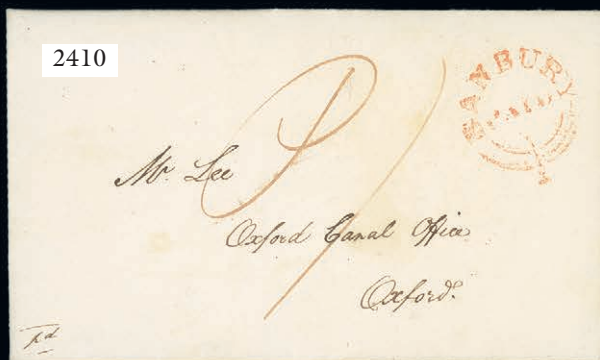 2410
BANBURY
PAID
Mr. Lee
Oxford Canal Office
Oxford.